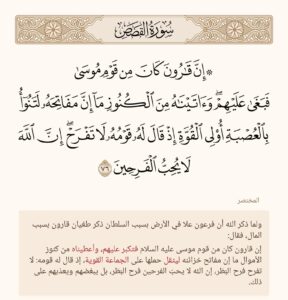 سُورَةُ القَصَصِ
۞ إِنَّ قَٰرُونَ كَانَ مِن قَوْمِ مُوسَىٰ
فَبَغَىٰ عَلَيْهِمْۖ وَءَاتَيْنَٰهُ مِنَ ٱلْكُنُوزِ مَآ إِنَّ مَفَاتِحَهُۥ لَتَنُوٓأُ
بِٱلْعُصْبَةِ أُو۟لِى ٱلْقُوَّةِ إِذْ قَالَ لَهُۥ قَوْمُهُۥ لَا تَفْرَحْۖ إِنَّ ٱللَّهَ
لَا يُحِبُّ ٱلْفَرِحِينَ ٧٦
المختصر
ولما ذكر الله أن فرعون علا في الأرض بسبب السلطان ذكر طغيان قارون بسبب
المال، فقال:
إن قارون كان من قوم موسى عليه السلام فتكبر عليهم، وأعطيناه من كنوز
الأموال ما إن مفاتيح خزائنه ليثقل حملها على الجماعة القوية، إذ قال له قومه: لا
تفرح فرح البطر، إن الله لا يحب الفرحين فرح البطر، بل يبغضهم ويعذبهم على
ذلك.